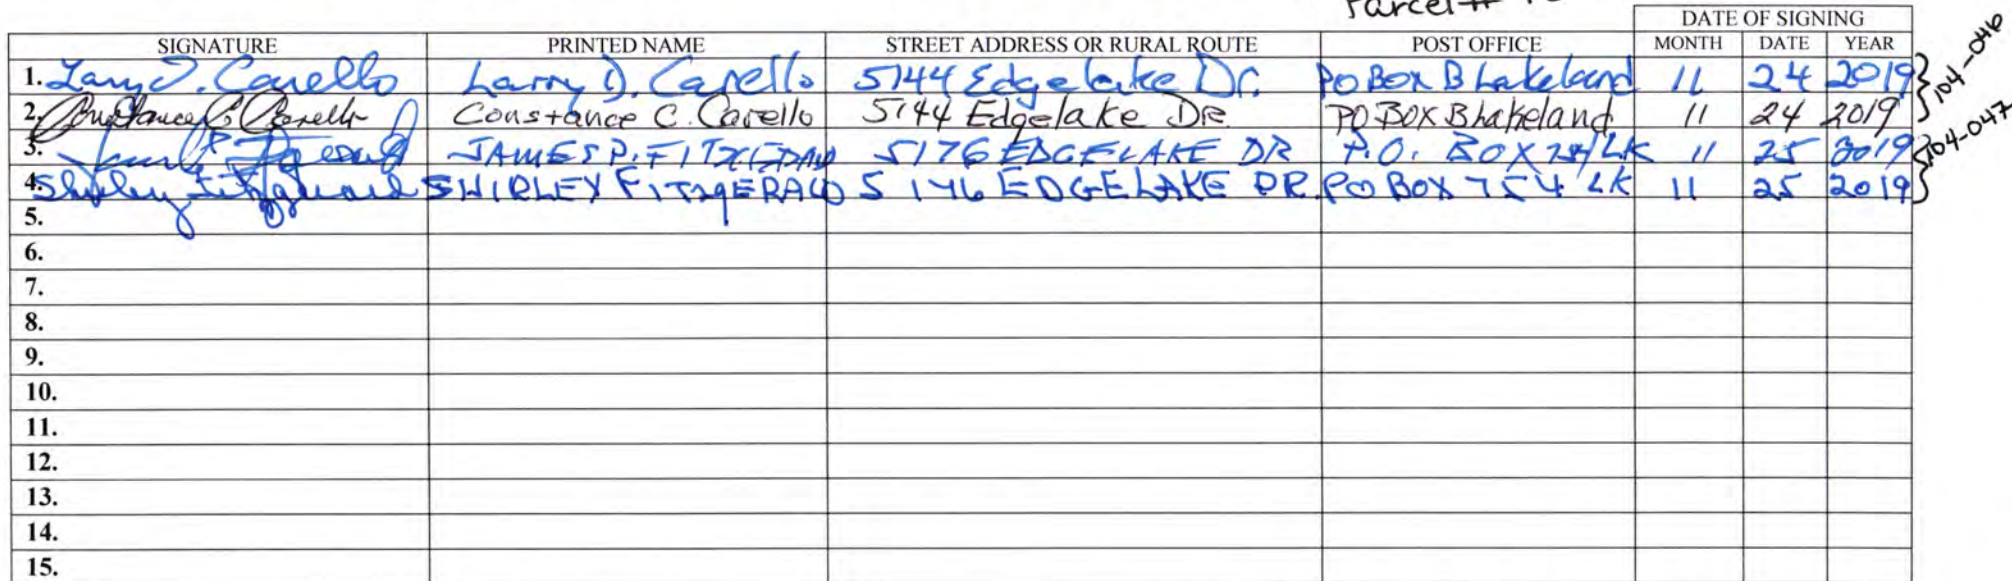 Parcel #
DATE OF SIGNING
SIGNATURE PRINTED NAME STREET ADDRESS OR RURAL ROUTE POST OFFICE MONTH DATE YEAR
1. Larry D. Carello Larry D. Carello 5144 Edgelake Dr. PO BOX B Lakeland 11 24 2019 } 104-046
2. Constance C. Carello Constance C. Carello 5144 Edgelake DR. PO BOX B Lakeland 11 24 2019
3. JAMES P. FITZGERALD 5176 EDGELAKE DR P.O. BOX 754 LK 11 25 2019 } 104-047
4. Shirley Fitzgerald SHIRLEY FITZGERALD 5146 EDGELAKE DR. PO BOX 754 LK 11 25 2019
5.
6.
7.
8.
9.
10.
11.
12.
13.
14.
15.